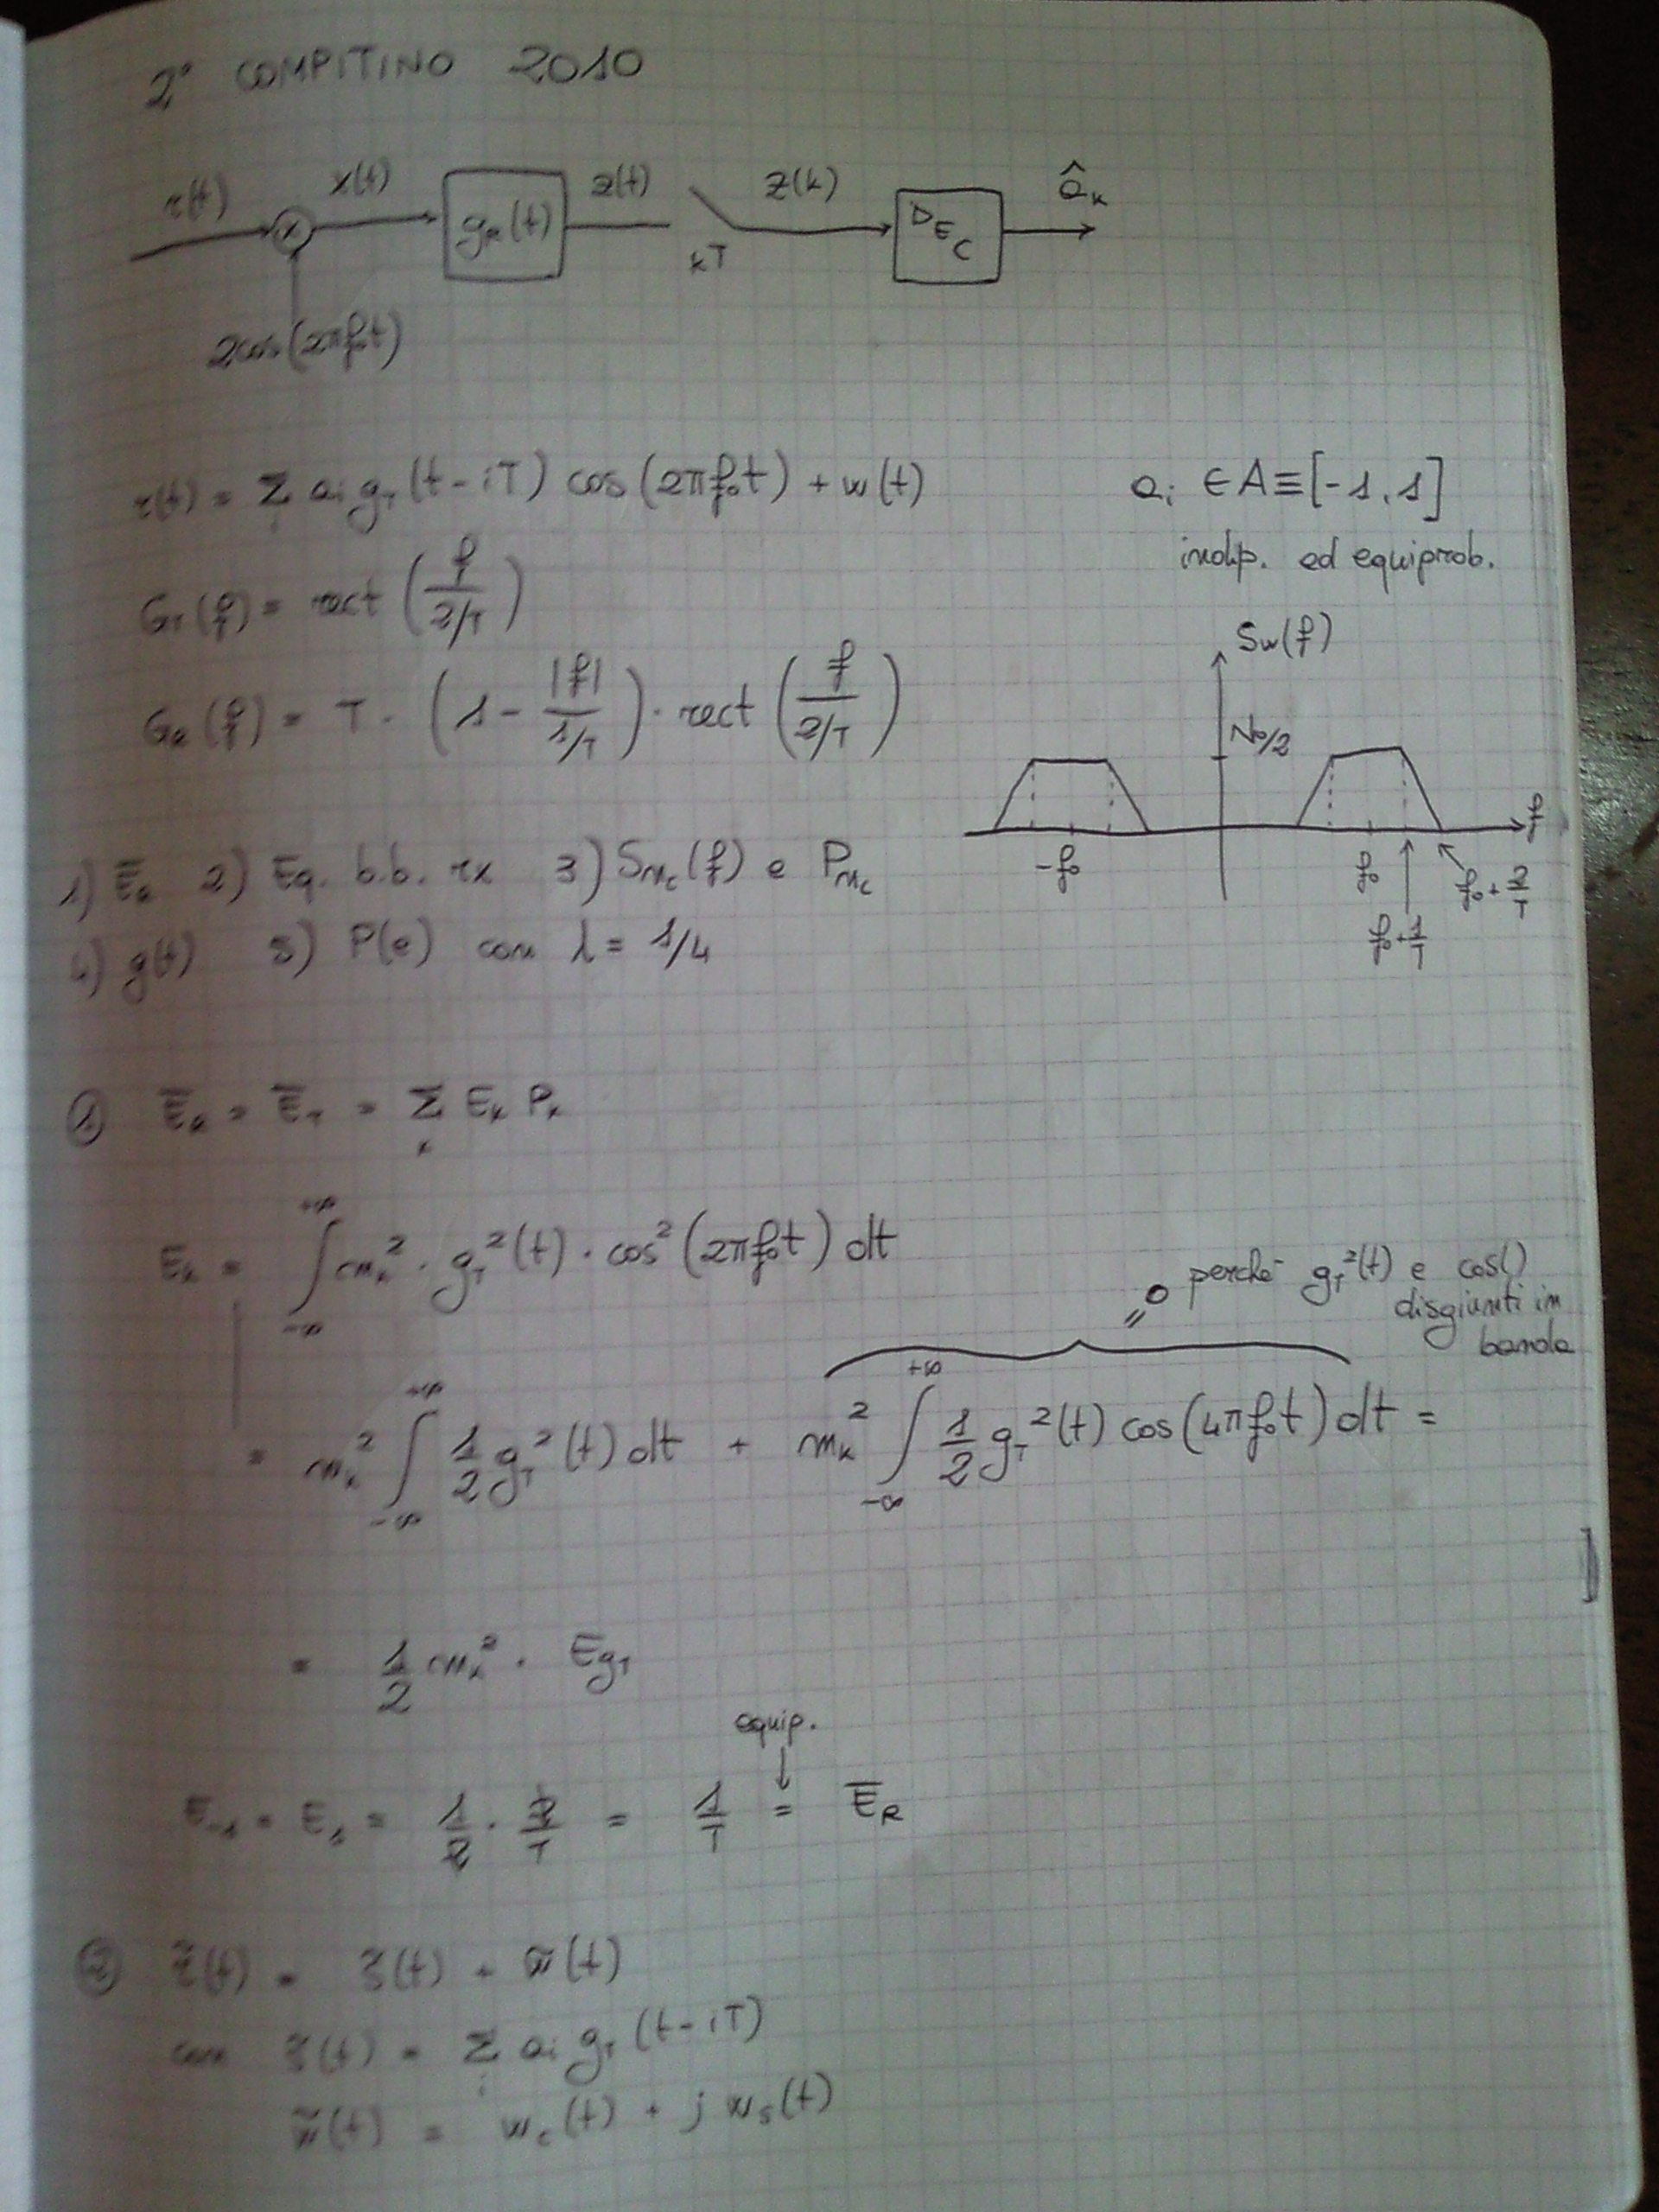 2° COMPITINO 2010
r(t) x(t) g_R(t) z(t) kT z(k) DEC â_k
2cos(2πf₀t)
r(t) = Σ_i a_i g_T(t-iT) cos(2πf₀t) + w(t) a_i ∈ A ≡ [-1, 1]
indip. ed equiprob.
G_T(f) = rect (f / 2/T)
S_w(f)
G_R(f) = T · (1 - |f| / 1/T) · rect (f / 2/T)
N₀/2
f
-f₀ f₀ f₀+2/T
f₀+1/T
1) Ē_R 2) Eq. b.b. rx 3) S_nc(f) e P_nc
4) g(t) 5) P(e) con λ = 1/4
① Ē_R = Ē_T = Σ_k E_k P_k
E_k = ∫_{-∞}^{+∞} m_k² · g_T²(t) · cos²(2πf₀t) dt
= 0 perché g_T²(t) e cos()
disgiunti in
banda
= m_k² ∫_{-∞}^{+∞} 1/2 g_T²(t) dt + m_k² ∫_{-∞}^{+∞} 1/2 g_T²(t) cos(4πf₀t) dt =
= 1/2 m_k² · E_gT
equip.
E_-1 = E_1 = 1/2 · 2/T = 1/T = Ē_R
② r̃(t) = s̃(t) + w̃(t)
con s̃(t) = Σ_i a_i g_T(t-iT)
w̃(t) = w_c(t) + j w_s(t)